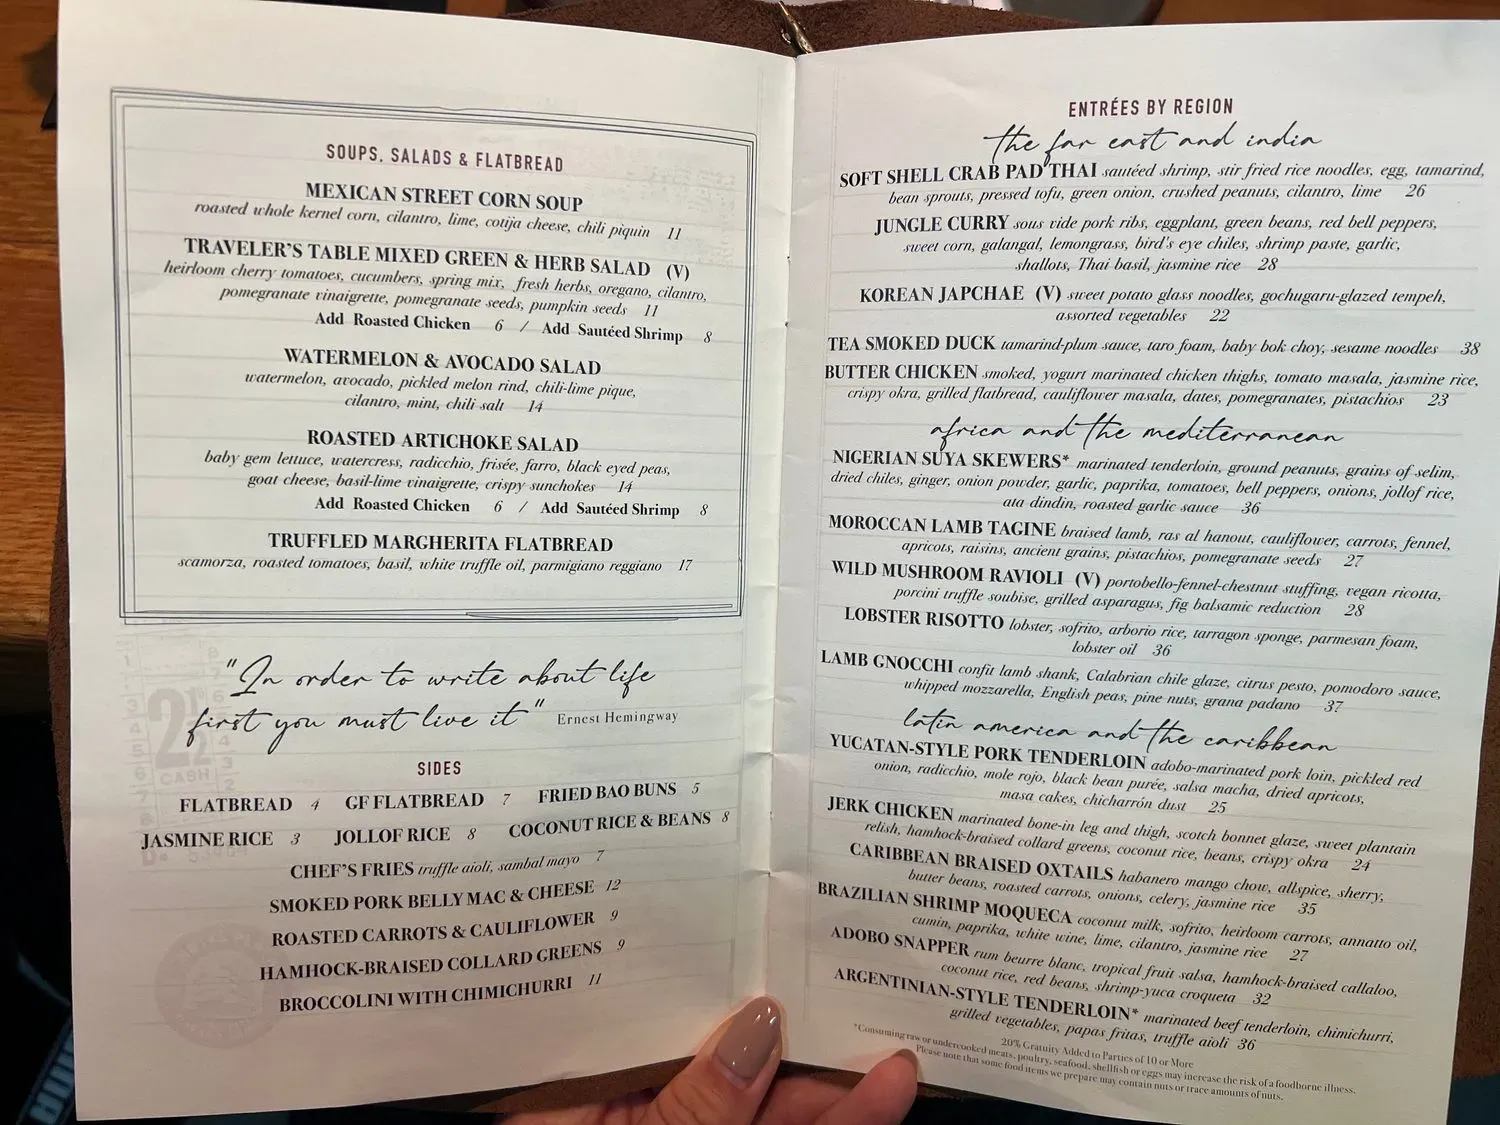 SOUPS, SALADS & FLATBREAD
MEXICAN STREET CORN SOUP
roasted whole kernel corn, cilantro, lime, cotija cheese, chili piquin 11
TRAVELER'S TABLE MIXED GREEN & HERB SALAD (V)
heirloom cherry tomatoes, cucumbers, spring mix, fresh herbs, oregano, cilantro,
pomegranate vinaigrette, pomegranate seeds, pumpkin seeds 11
Add Roasted Chicken 6 / Add Sautéed Shrimp 8
WATERMELON & AVOCADO SALAD
watermelon, avocado, pickled melon rind, chili-lime pique,
cilantro, mint, chili salt 14
ROASTED ARTICHOKE SALAD
baby gem lettuce, watercress, radicchio, frisée, farro, black eyed peas,
goat cheese, basil-lime vinaigrette, crispy sunchokes 14
Add Roasted Chicken 6 / Add Sautéed Shrimp 8
TRUFFLED MARGHERITA FLATBREAD
scamorza, roasted tomatoes, basil, white truffle oil, parmigiano reggiano 17
"In order to write about life
first you must live it" Ernest Hemingway
SIDES
FLATBREAD 4 GF FLATBREAD 7 FRIED BAO BUNS 5
JASMINE RICE 3 JOLLOF RICE 8 COCONUT RICE & BEANS 8
CHEF'S FRIES truffle aioli, sambal mayo 7
SMOKED PORK BELLY MAC & CHEESE 12
ROASTED CARROTS & CAULIFLOWER 9
HAMHOCK-BRAISED COLLARD GREENS 9
BROCCOLINI WITH CHIMICHURRI 11
ENTRÉES BY REGION
the far east and india
SOFT SHELL CRAB PAD THAI sautéed shrimp, stir fried rice noodles, egg, tamarind,
bean sprouts, pressed tofu, green onion, crushed peanuts, cilantro, lime 26
JUNGLE CURRY sous vide pork ribs, eggplant, green beans, red bell peppers,
sweet corn, galangal, lemongrass, bird's eye chiles, shrimp paste, garlic,
shallots, Thai basil, jasmine rice 28
KOREAN JAPCHAE (V) sweet potato glass noodles, gochugaru-glazed tempeh,
assorted vegetables 22
TEA SMOKED DUCK tamarind-plum sauce, taro foam, baby bok choy, sesame noodles 38
BUTTER CHICKEN smoked, yogurt marinated chicken thighs, tomato masala, jasmine rice,
crispy okra, grilled flatbread, cauliflower masala, dates, pomegranates, pistachios 23
africa and the mediterranean
NIGERIAN SUYA SKEWERS* marinated tenderloin, ground peanuts, grains of selim,
dried chiles, ginger, onion powder, garlic, paprika, tomatoes, bell peppers, onions, jollof rice,
ata dindin, roasted garlic sauce 36
MOROCCAN LAMB TAGINE braised lamb, ras al hanout, cauliflower, carrots, fennel,
apricots, raisins, ancient grains, pistachios, pomegranate seeds 27
WILD MUSHROOM RAVIOLI (V) portobello-fennel-chestnut stuffing, vegan ricotta,
porcini truffle soubise, grilled asparagus, fig balsamic reduction 28
LOBSTER RISOTTO lobster, sofrito, arborio rice, tarragon sponge, parmesan foam,
lobster oil 36
LAMB GNOCCHI confit lamb shank, Calabrian chile glaze, citrus pesto, pomodoro sauce,
whipped mozzarella, English peas, pine nuts, grana padano 37
latin america and the caribbean
YUCATAN-STYLE PORK TENDERLOIN adobo-marinated pork loin, pickled red
onion, radicchio, mole rojo, black bean purée, salsa macha, dried apricots,
masa cakes, chicharrón dust 25
JERK CHICKEN marinated bone-in leg and thigh, scotch bonnet glaze, sweet plantain
relish, hamhock-braised collard greens, coconut rice, beans, crispy okra 24
CARIBBEAN BRAISED OXTAILS habanero mango chow, allspice, sherry,
butter beans, roasted carrots, onions, celery, jasmine rice 35
BRAZILIAN SHRIMP MOQUECA coconut milk, sofrito, heirloom carrots, annatto oil,
cumin, paprika, white wine, lime, cilantro, jasmine rice 27
ADOBO SNAPPER rum beurre blanc, tropical fruit salsa, hamhock-braised callaloo,
coconut rice, red beans, shrimp-yuca croqueta 32
ARGENTINIAN-STYLE TENDERLOIN* marinated beef tenderloin, chimichurri,
grilled vegetables, papas fritas, truffle aioli 36
20% Gratuity Added to Parties of 10 or More
*Consuming raw or undercooked meats, poultry, seafood, shellfish or eggs may increase the risk of a foodborne illness.
Please note that some food items we prepare may contain nuts or trace amounts of nuts.